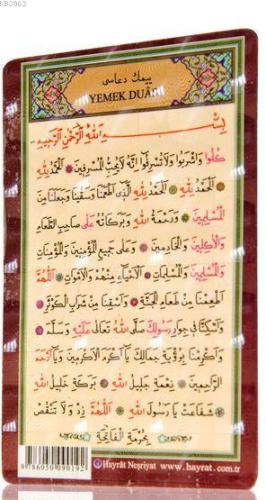 KB0962
ييمك دعاسى
YEMEK DUÂSI
بِسْمِ اللّٰهِ الرَّحْمٰنِ الرَّحِيمِ
كُلُوا وَاشْرَبُوا وَلَاتُسْرِفُوا اِنَّهُ لَايُحِبُّ الْمُسْرِفِينَ ❁ اَلْحَمْدُ لِلّٰهِ
❁ اَلْحَمْدُ لِلّٰهِ ❁ اَلْحَمْدُ لِلّٰهِ الَّذِى اَطْعَمَنَا وَسَقَينَا وَجَعَلَنَا مِنَ
الْمُسْلِمِينَ ❁ وَرَحْمَةُ اللّٰهِ وَبَرَكَاتُهُ عَلٰى صَاحِبِ الطَّعَامِ
وَالْاٰكِلِينَ وَالْخَادِمِينَ ❁ وَعَلٰى جَمِيعِ الْمُؤْمِنِينَ وَالْمُؤْمِنَاتِ
وَالْمُسْلِمِينَ وَالْمُسْلِمَاتِ ❁ اَلْاَحْيَاءِ مِنْهُمْ وَالْاَمْوَاتِ ❁ اَللّٰهُمَّ
اَطْعِمْنَا مِنْ طَعَامِ الْجَنَّةِ ❁ وَاَسْقِنَا مِنْ شَرَابِ الْكَوْثَرِ ❁
وَاَسْكِنَّا فِى جِوَارِ رَسُولِكَ صَلَّى اللّٰهُ تَعَالٰى عَلَيْهِ وَسَلَّمَ ❁
وَاَكْرِمْنَا بِرُؤْيَةِ جَمَالِكَ يَا اَكْرَمَ الْاَكْرَمِينَ وَيَا اَرْحَمَ
الرَّاحِمِينَ ❁ نِعْمَةِ جَلِيلُ اللّٰهِ ❁ بَرَكَةِ خَلِيلُ اللّٰهِ
شَفَاعَتْ يَا رَسُولَ اللّٰهِ ❁ اَللّٰهُمَّ زِدْ وَلَا تَنْقُصْ
بِحُرْمَةِ الْفَاتِحَةِ
Hayrât Neşriyat www.hayrat.com.tr
9786050090192